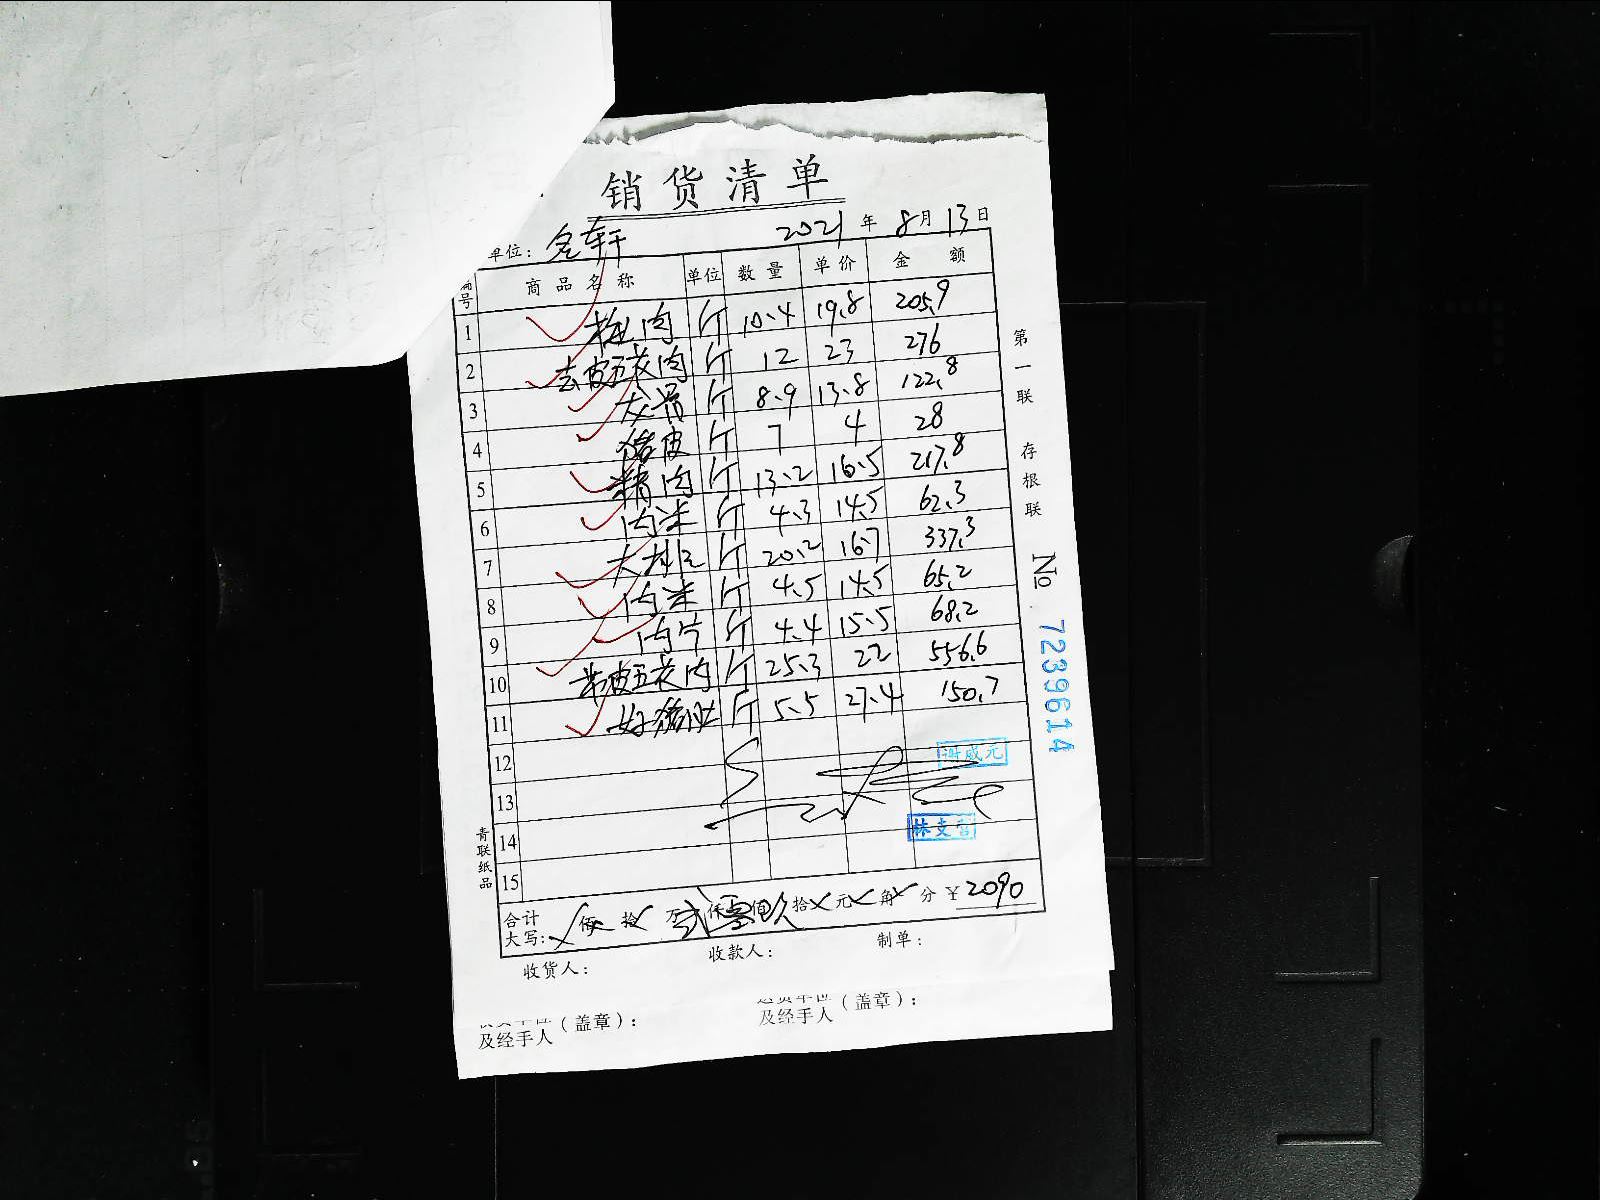 销货清单
单位: 名轩 2021年8月13日
编号 商品名称 单位 数量 单价 金额
1 梅肉 斤 10.4 19.8 205.9
2 去皮五花肉 斤 12 23 276
3 龙骨 斤 8.9 13.8 122.8
4 猪皮 斤 7 4 28
5 精肉 斤 13.2 16.5 217.8
6 肉米 斤 4.3 14.5 62.3
7 大排 斤 20.2 16.7 337.3
8 肉米 斤 4.5 14.5 65.2
9 肉片 斤 4.4 15.5 68.2
10 带皮五花肉 斤 25.3 22 556.6
11 好猪肚 斤 5.5 27.4 150.7
12
13
14
15
合计
大写: 佰 拾 万 贰仟 零佰 玖拾 元 角 分 ¥2090
收货人: 收款人: 制单:
及经手人(盖章): 及经手人(盖章):
第一联 存根联
№ 7239614
青联纸品